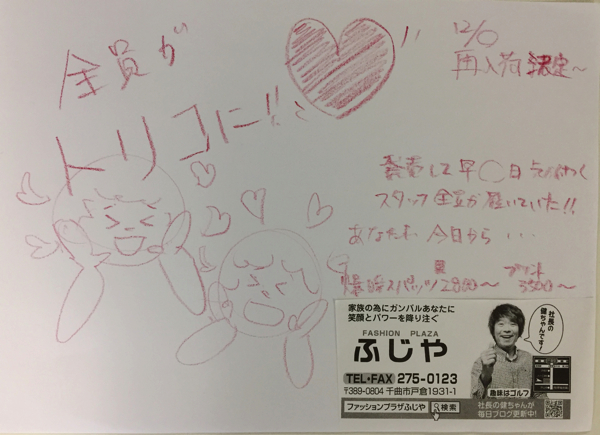 全員が
トリコに!!
12/○
再入荷決定～
発売して早○日
スタッフ全員が履いていた!!
あなたも 今日から・・・
爆暖スパッツ 2800～
プリント 3500～
家族の為にガンバルあなたに
笑顔とパワーを降り注ぐ
FASHION PLAZA
ふじや
TEL・FAX 275-0123
〒389-0804 千曲市戸倉1931-1
ファッションプラザふじや 検索
社長の
健ちゃんです!
趣味はゴルフ
社長の健ちゃんが
毎日ブログ更新中!